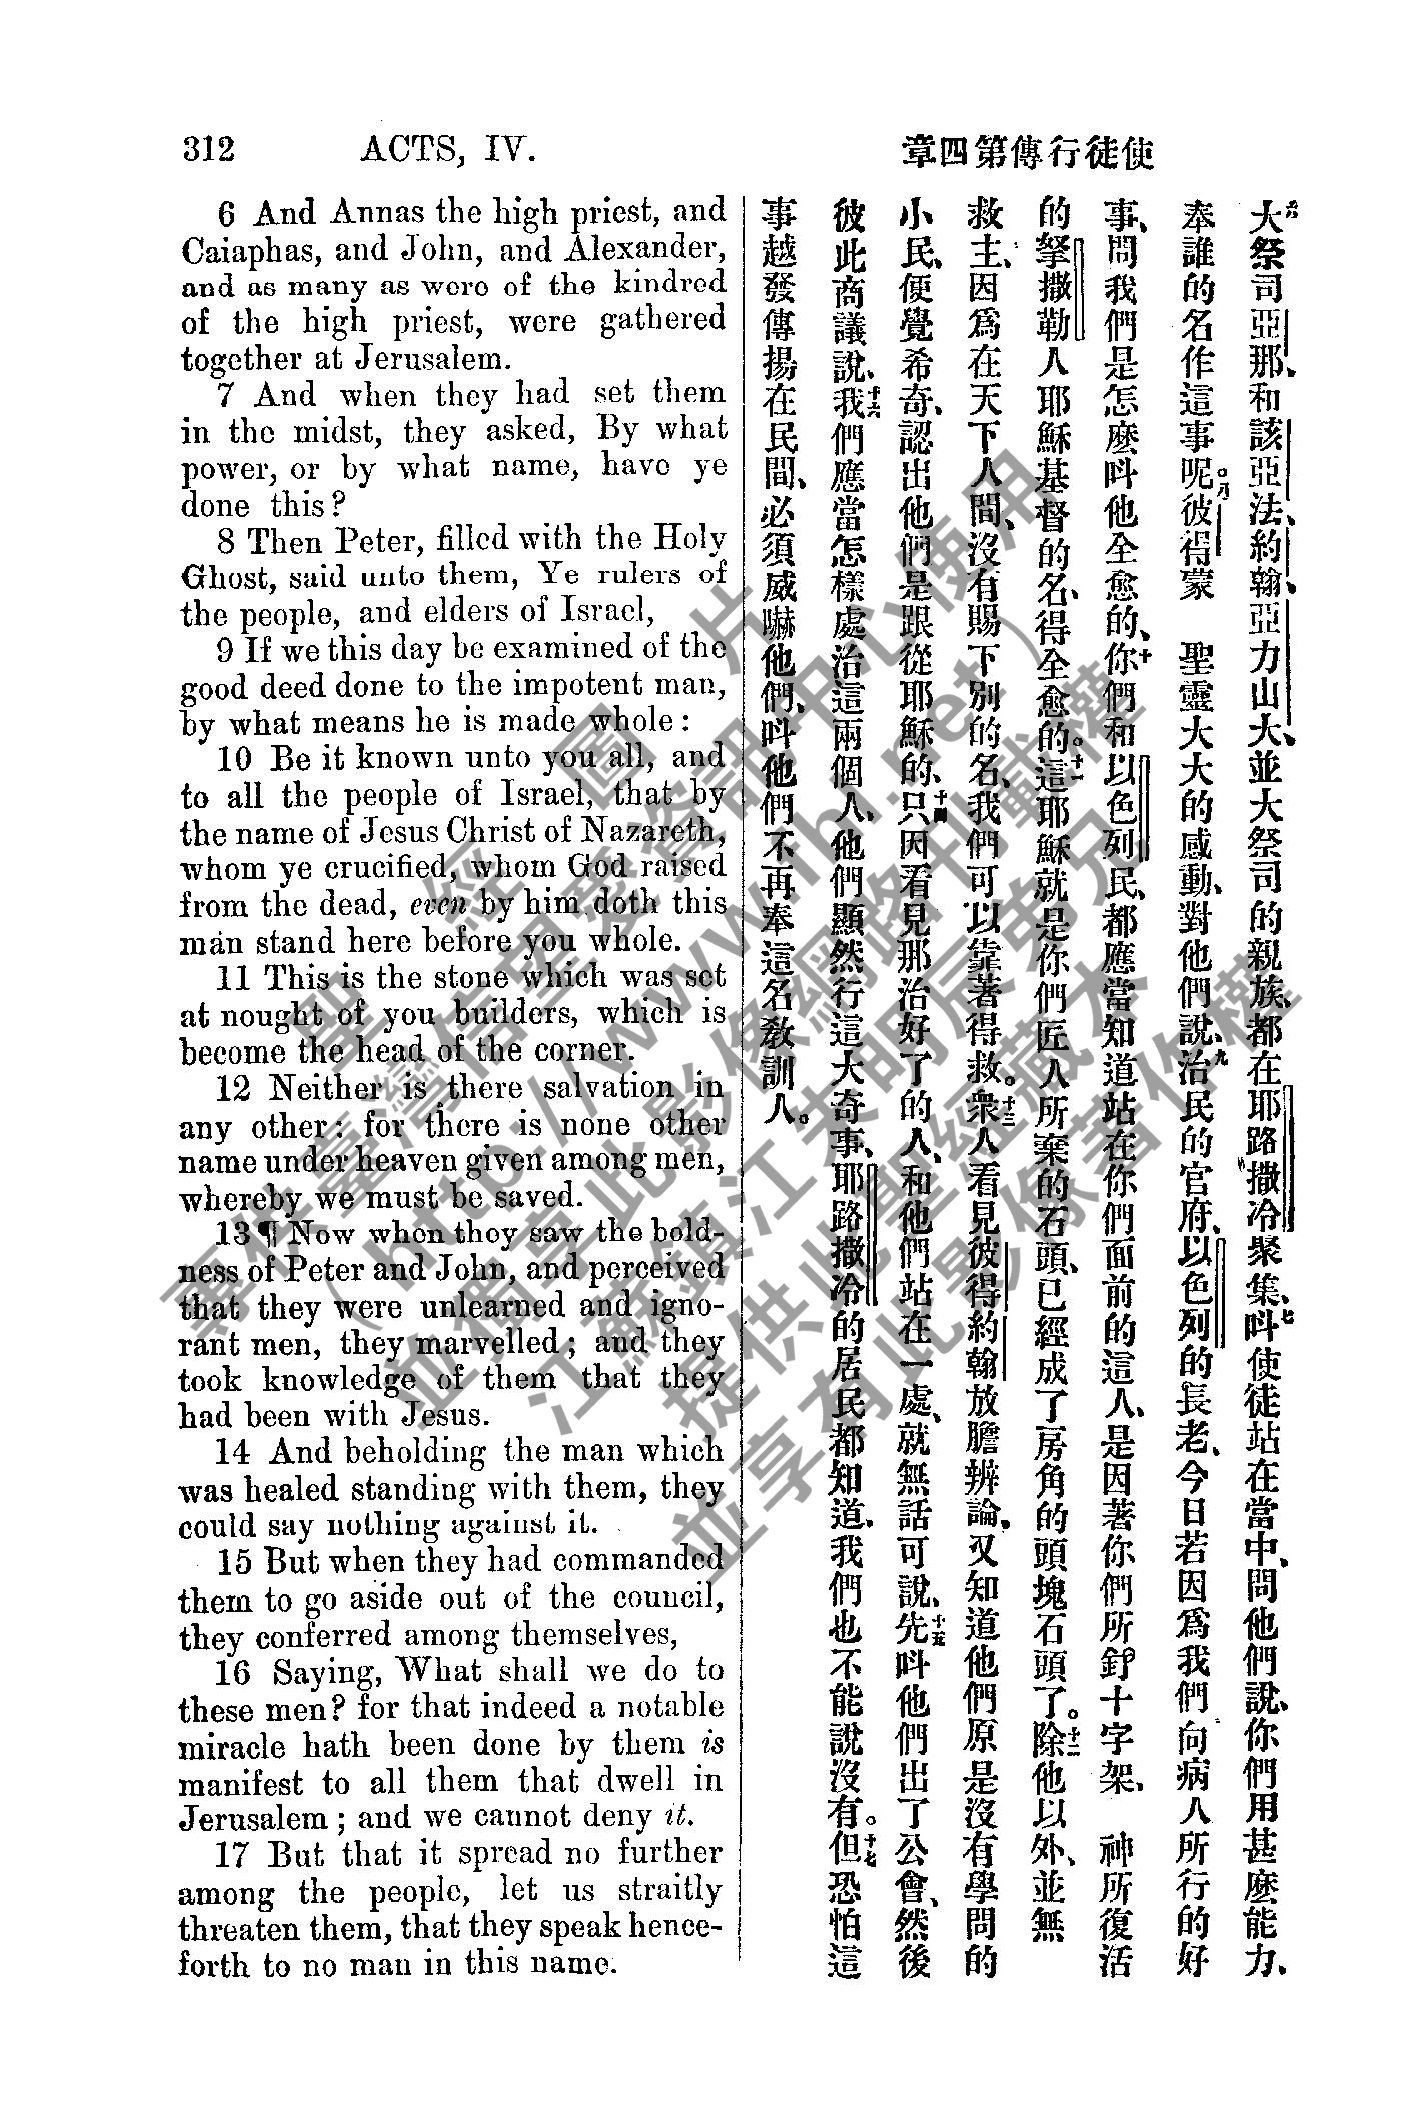 312 ACTS, IV.
使徒行傳第四章
6 And Annas the high priest, and
Caiaphas, and John, and Alexander,
and as many as were of the kindred
of the high priest, were gathered
together at Jerusalem.
7 And when they had set them
in the midst, they asked, By what
power, or by what name, have ye
done this?
8 Then Peter, filled with the Holy
Ghost, said unto them, Ye rulers of
the people, and elders of Israel,
9 If we this day be examined of the
good deed done to the impotent man,
by what means he is made whole:
10 Be it known unto you all, and
to all the people of Israel, that by
the name of Jesus Christ of Nazareth,
whom ye crucified, whom God raised
from the dead, even by him doth this
man stand here before you whole.
11 This is the stone which was set
at nought of you builders, which is
become the head of the corner.
12 Neither is there salvation in
any other: for there is none other
name under heaven given among men,
whereby we must be saved.
13 ¶ Now when they saw the bold-
ness of Peter and John, and perceived
that they were unlearned and igno-
rant men, they marvelled; and they
took knowledge of them that they
had been with Jesus.
14 And beholding the man which
was healed standing with them, they
could say nothing against it.
15 But when they had commanded
them to go aside out of the council,
they conferred among themselves,
16 Saying, What shall we do to
these men? for that indeed a notable
miracle hath been done by them is
manifest to all them that dwell in
Jerusalem; and we cannot deny it.
17 But that it spread no further
among the people, let us straitly
threaten them, that they speak hence-
forth to no man in this name.
六大祭司亞那、和該亞法、約翰、亞力山大、並大祭司的親族、都在耶路撒冷聚集、七呌使徒站在當中、問他們說、你們用甚麼能力、
奉誰的名作這事呢。八彼得蒙 聖靈大大的感動、對他們說、九治民的官府、以色列的長老、今日若因爲我們向病人所行的好
事、問我們是怎麽呌他全愈的、十你們和以色列民、都應當知道站在你們面前的這人、是因著你們所釘十字架、 神所復活
的拏撒勒人耶穌基督的名、得全愈的。十一這耶穌就是你們匠人所棄的石頭、已經成了房角的頭塊石頭了。十二除他以外、並無
救主、因爲在天下人間、沒有賜下別的名、我們可以靠著得救。十三衆人看見彼得約翰放膽辨論、又知道他們原是沒有學問的
小民、便覺希奇、認出他們是跟從耶穌的、十四只因看見那治好了的人、和他們站在一處、就無話可說、十五先呌他們出了公會、然後
彼此商議說、十六我們應當怎樣處治這兩個人、他們顯然行這大奇事、耶路撒冷的居民都知道、我們也不能說沒有。十七但恐怕這
事越發傳揚在民間、必須威嚇他們、呌他們不再奉這名敎訓人。